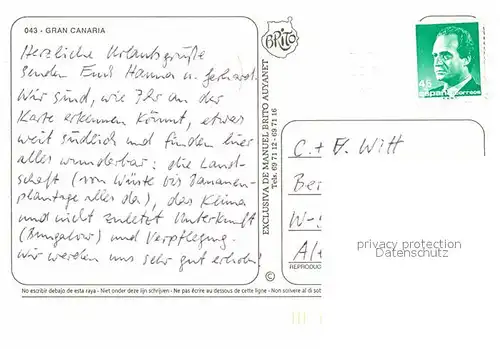 043 - GRAN CANARIA
Herzliche Urlaubsgrüße
senden Euch Hanna u. Gerhard.
Wir sind, wie Ihr an der
Karte erkennen könnt, etwas
weit südlich und finden hier
alles wunderbar: die Land-
schaft (von Wüste bis Bananen-
plantage alles da), das Klima
und nicht zuletzt Unterkunft
(Bungalow) und Verpflegung.
Wir werden uns sehr gut erholen!
No escribir debajo de esta raya - Niet onder deze lijn schrijven - Ne pas écrire au dessous de cette ligne - Non scrivere al di sot
BRITO
EXCLUSIVA DE MANUEL BRITO AUYANET
Tels. 69 71 12 - 69 71 16
©
45
España correos
C. + A. Witt
Ber
W-
Alt
REPRODUC
privacy protection
Datenschutz